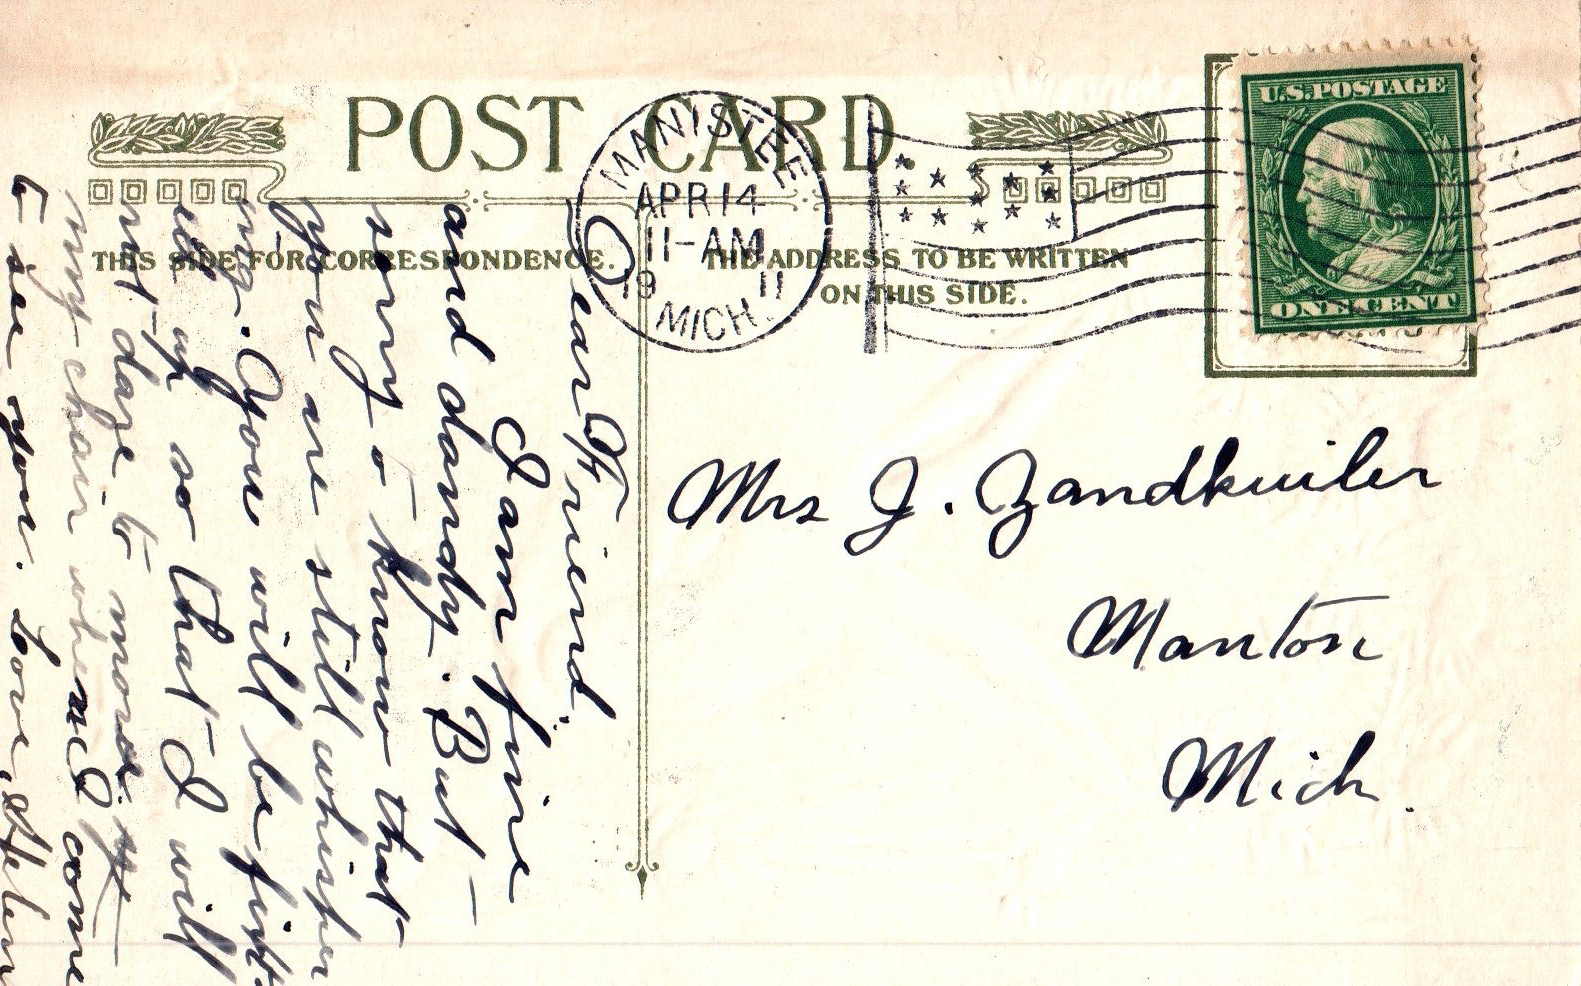 POST CARD
THIS SIDE FOR CORRESPONDENCE.
THE ADDRESS TO BE WRITTEN
ON THIS SIDE.
MANISTEE
APR 14
11-AM
1911
MICH.
U.S. POSTAGE
ONE CENT
Mrs J. Zandkuiler
Manton
Mich.
Dear Friend.
I am fine
and dandy. But
sorry to know that
you are still whisper
ing. You will be
up so that I will
not dare to move
my chair when I come
to see you. Love, Helen